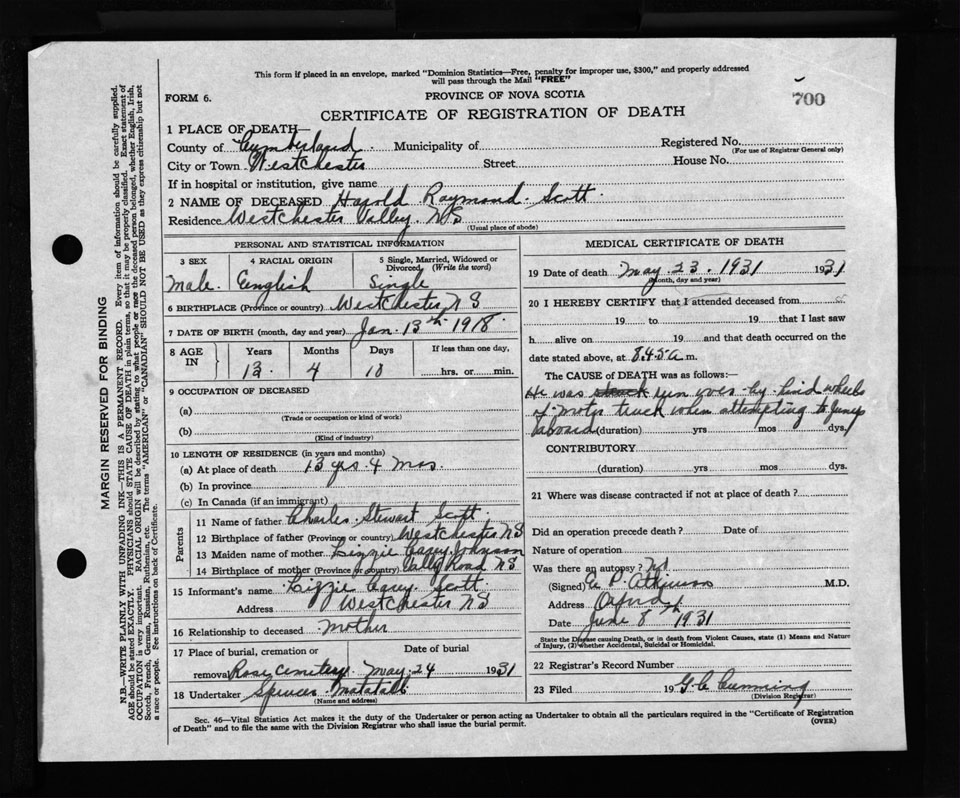 This form if placed in an envelope, marked "Dominion Statistics—Free, penalty for improper use, $300," and properly addressed
will pass through the Mail "FREE"
FORM 6.
PROVINCE OF NOVA SCOTIA
700
CERTIFICATE OF REGISTRATION OF DEATH
1 PLACE OF DEATH—
County of Cumberland Municipality of Registered No.
(For use of Registrar General only)
City or Town Westchester Street House No.
If in hospital or institution, give name
2 NAME OF DECEASED Harold Raymond Scott
Residence Westchester Valley. NS
(Usual place of abode)
PERSONAL AND STATISTICAL INFORMATION
3 SEX 4 RACIAL ORIGIN 5 Single, Married, Widowed or
Divorced (Write the word)
Male. English Single
6 BIRTHPLACE (Province or country) Westchester NS
7 DATE OF BIRTH (month, day and year) Jan. 13th 1918
8 AGE IN Years Months Days If less than one day,
13 4 10 hrs. or min.
9 OCCUPATION OF DECEASED
(a)
(Trade or occupation or kind of work)
(b)
(Kind of industry)
10 LENGTH OF RESIDENCE (in years and months)
(a) At place of death 13 yrs 4 Mos.
(b) In province
(c) In Canada (if an immigrant)
Parents
11 Name of father Charles Stewart Scott
12 Birthplace of father (Province or country) Westchester NS
13 Maiden name of mother Lizzie Johnson
14 Birthplace of mother (Province or country) Valley Road NS
15 Informant's name Lizzie Scott
Address Westchester NS
16 Relationship to deceased Mother
17 Place of burial, cremation or Date of burial
removal Rose Cemetery May 24 1931
18 Undertaker Spencer Matatall
(Name and address)
MEDICAL CERTIFICATE OF DEATH
19 Date of death May 23. 1931 1931
(Month, day and year)
20 I HEREBY CERTIFY that I attended deceased from
19 to 19 that I last saw
h alive on 19 and that death occurred on the
date stated above, at 8.45 a m.
The CAUSE of DEATH was as follows:—
He was struck run over by hind wheels
of motor truck when attempting to jump
aboard (duration) yrs mos dys.
CONTRIBUTORY
(duration) yrs mos dys.
21 Where was disease contracted if not at place of death?
Did an operation precede death? Date of
Nature of operation
Was there an autopsy? No
(Signed) P. Atkinson M.D.
Address Oxford
Date June 8th 1931
State the Disease causing Death, or in death from Violent Causes, state (1) Means and Nature
of Injury, (2) whether Accidental, Suicidal or Homicidal.
22 Registrar's Record Number
23 Filed 19 G C Cumming
(Division Registrar)
Sec. 46—Vital Statistics Act makes it the duty of the Undertaker or person acting as Undertaker to obtain all the particulars required in the "Certificate of Registration
of Death" and to file the same with the Division Registrar who shall issue the burial permit.
(OVER)
MARGIN RESERVED FOR BINDING
N.B.—WRITE PLAINLY WITH UNFADING INK—THIS IS A PERMANENT RECORD. Every item of information should be carefully supplied.
AGE should be stated EXACTLY. PHYSICIANS should STATE CAUSE OF DEATH in plain terms, so that it may be properly classified. Exact statement of
OCCUPATION is very important. RACIAL ORIGIN will be described by stating to what people or race the deceased person belonged, whether English, Irish,
Scotch, French, German, Russian, Ruthenian, etc. The terms "AMERICAN" or "CANADIAN" SHOULD NOT BE USED as they express citizenship but not
a race or people. See instructions on back of Certificate.